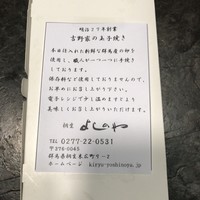 明治三十年創業
吉野家の玉子焼き
本日仕入れた新鮮な群馬産の卵を
使用し、職人が一つ一つに手焼き
しております。
保存料など使用しておりませんので、
お早めにお召し上がり下さい。
電子レンジで少し温めますとより
美味しくお召し上がりいただけます。
桐生 よしのや
TEL 0277-22-0531
〒376-0045
群馬県桐生市末広町9-2
ホームページ kiryu-yoshinoya.jp